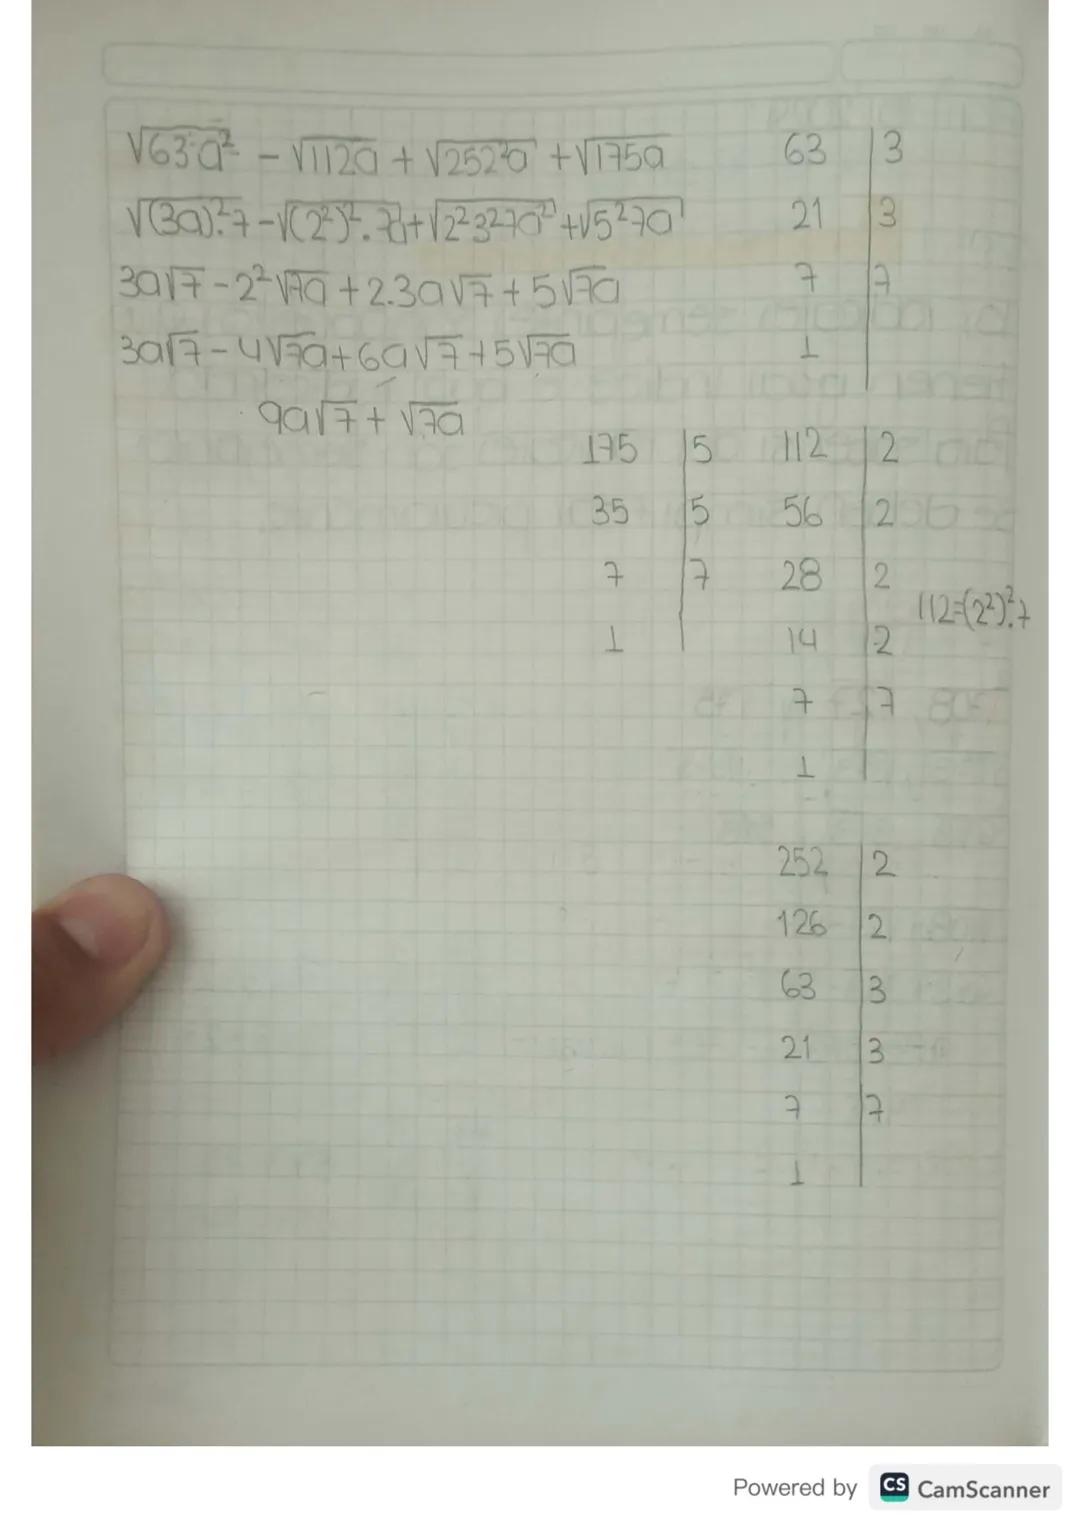 √63a² - √112a + √252²a + √175a
√(3a)².7 - √(2²)².7a + √2²3²7a² + √5²7a
3a√7 - 2²√7a + 2.3a√7 + 5√7a
3a√7 - 4√7a + 6a√7 + 5√7a
9a√7 + √7a
63 | 3
21 | 3
7 | 7
1
175 | 5
35 | 5
7 | 7
1
112 | 2
56 | 2
28 | 2
14 | 2
7 | 7
1
112=(2²)².7
252 | 2
126 | 2
63 | 3
21 | 3
7 | 7
1
Powered by CS CamScanner